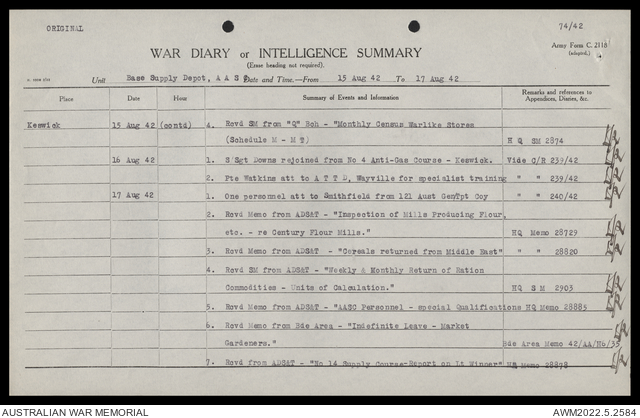 ORIGINAL
74/42
WAR DIARY or INTELLIGENCE SUMMARY
Army Form C. 2118
(adapted.)
(Erase heading not required).
Unit Base Supply Depot, A A S C Date and Time.—From 15 Aug 42 To 17 Aug 42
Place Date Hour Summary of Events and Information Remarks and references to Appendices, Diaries, &c.
Keswick 15 Aug 42 (contd) 4. Rcvd SM from "Q" Bch - "Monthly Census Warlike Stores
(Schedule M - M T) H Q SM 2874
16 Aug 42 1. S/Sgt Downs rejoined from No 4 Anti-Gas Course - Keswick. Vide C/R 239/42
2. Pte Watkins att to A T T D, Wayville for specialist training " " 239/42
17 Aug 42 1. One personnel att to Smithfield from 121 Aust GenTpt Coy " " 240/42
2. Rcvd Memo from ADS&T - "Inspection of Mills Producing Flour,
etc. - re Century Flour Mills." HQ Memo 28729
3. Rcvd Memo from ADS&T - "Cereals returned from Middle East" " " 28820
4. Rcvd SM from ADS&T - "Weekly & Monthly Return of Ration
Commodities - Units of Calculation." HQ S M 2903
5. Rcvd Memo from ADS&T - "AASC Personnel - special Qualifications HQ Memo 28885
6. Rcvd Memo from Bde Area - "Indefinite Leave - Market
Gardeners." Bde Area Memo 42/AA/H6/35
7. Rcvd from ADS&T - "No 14 Supply Course-Report on Lt Winner" HQ Memo 28878
AUSTRALIAN WAR MEMORIAL
AWM2022.5.2584